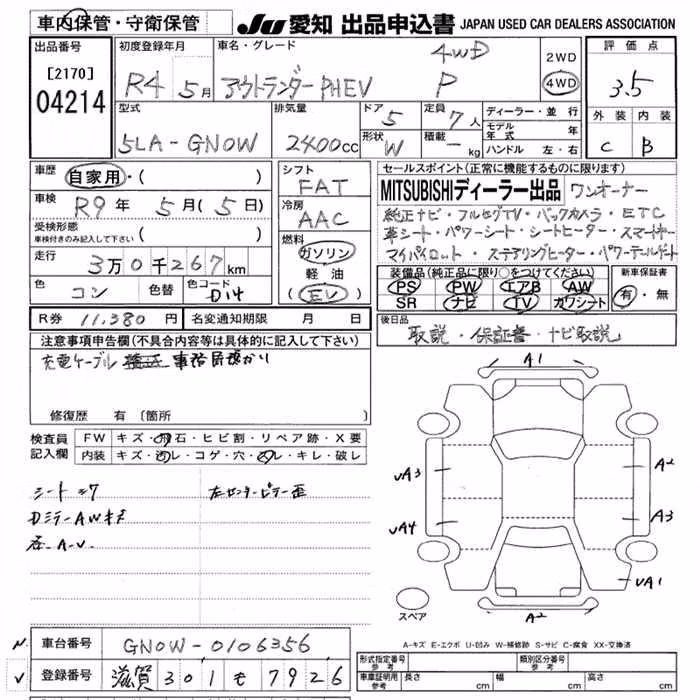 車内保管・守衛保管
JU 愛知 出品申込書 JAPAN USED CAR DEALERS ASSOCIATION
出品番号
[2170]
04214
初度登録年月
R4 5月
車名・グレード
アウトランダーPHEV
4WD
P
2WD
4WD
評価点
3.5
外装 内装
C B
型式
5LA-GN0W
排気量
2400cc
ドア
5
形状
W
定員
7人
積載
- kg
ディーラー・並行
モデル年式 年
ハンドル 左・右
車歴
自家用・( )
車検
R9年 5月(5日)
受検形態
車検付きのみ記入して下さい ( )
走行
3万0千267km
色
コン
色替
色コード
D14
シフト
FAT
冷房
AAC
燃料
ガソリン
軽油
(EV)
セールスポイント(正常に機能するものに限ります)
MITSUBISHIディーラー出品 ワンオーナー
純正ナビ・フルセグTV・バックカメラ・ETC
革シート・パワーシート・シートヒーター・スマートキー
マイパイロット・ステアリングヒーター・パワーテールゲート
装備品(純正品に限り○をつけてください)
PS PW エアB AW
SR ナビ TV カワシート
新車保証書
有・無
R券 11,380円 名変通知期限 月 日
後日品
取説・保証書・ナビ取説
注意事項申告欄(不具合内容等は具体的に記入して下さい)
充電ケーブル 事務局預かり
修復歴 有 〔箇所 〕
検査員記入欄
FW キズ・飛石・ヒビ割・リペア跡・X要
内装 キズ・汚レ・コゲ・穴・スレ・キレ・破レ
シートシワ
左センターピラー歪
DミラーAWキズ
A-U
A1
UA3
A2
UA4
A3
UA1
A2
スペア
A-キズ E-エクボ U-凹み W-補修跡 S-サビ C-腐食 XX-交換済
車台番号 GN0W-0106356
登録番号 滋賀 301 も 7926
形式指定番号 参考
類別区分番号 参考
車庫証明用 参考
長さ cm
幅 cm
高さ cm